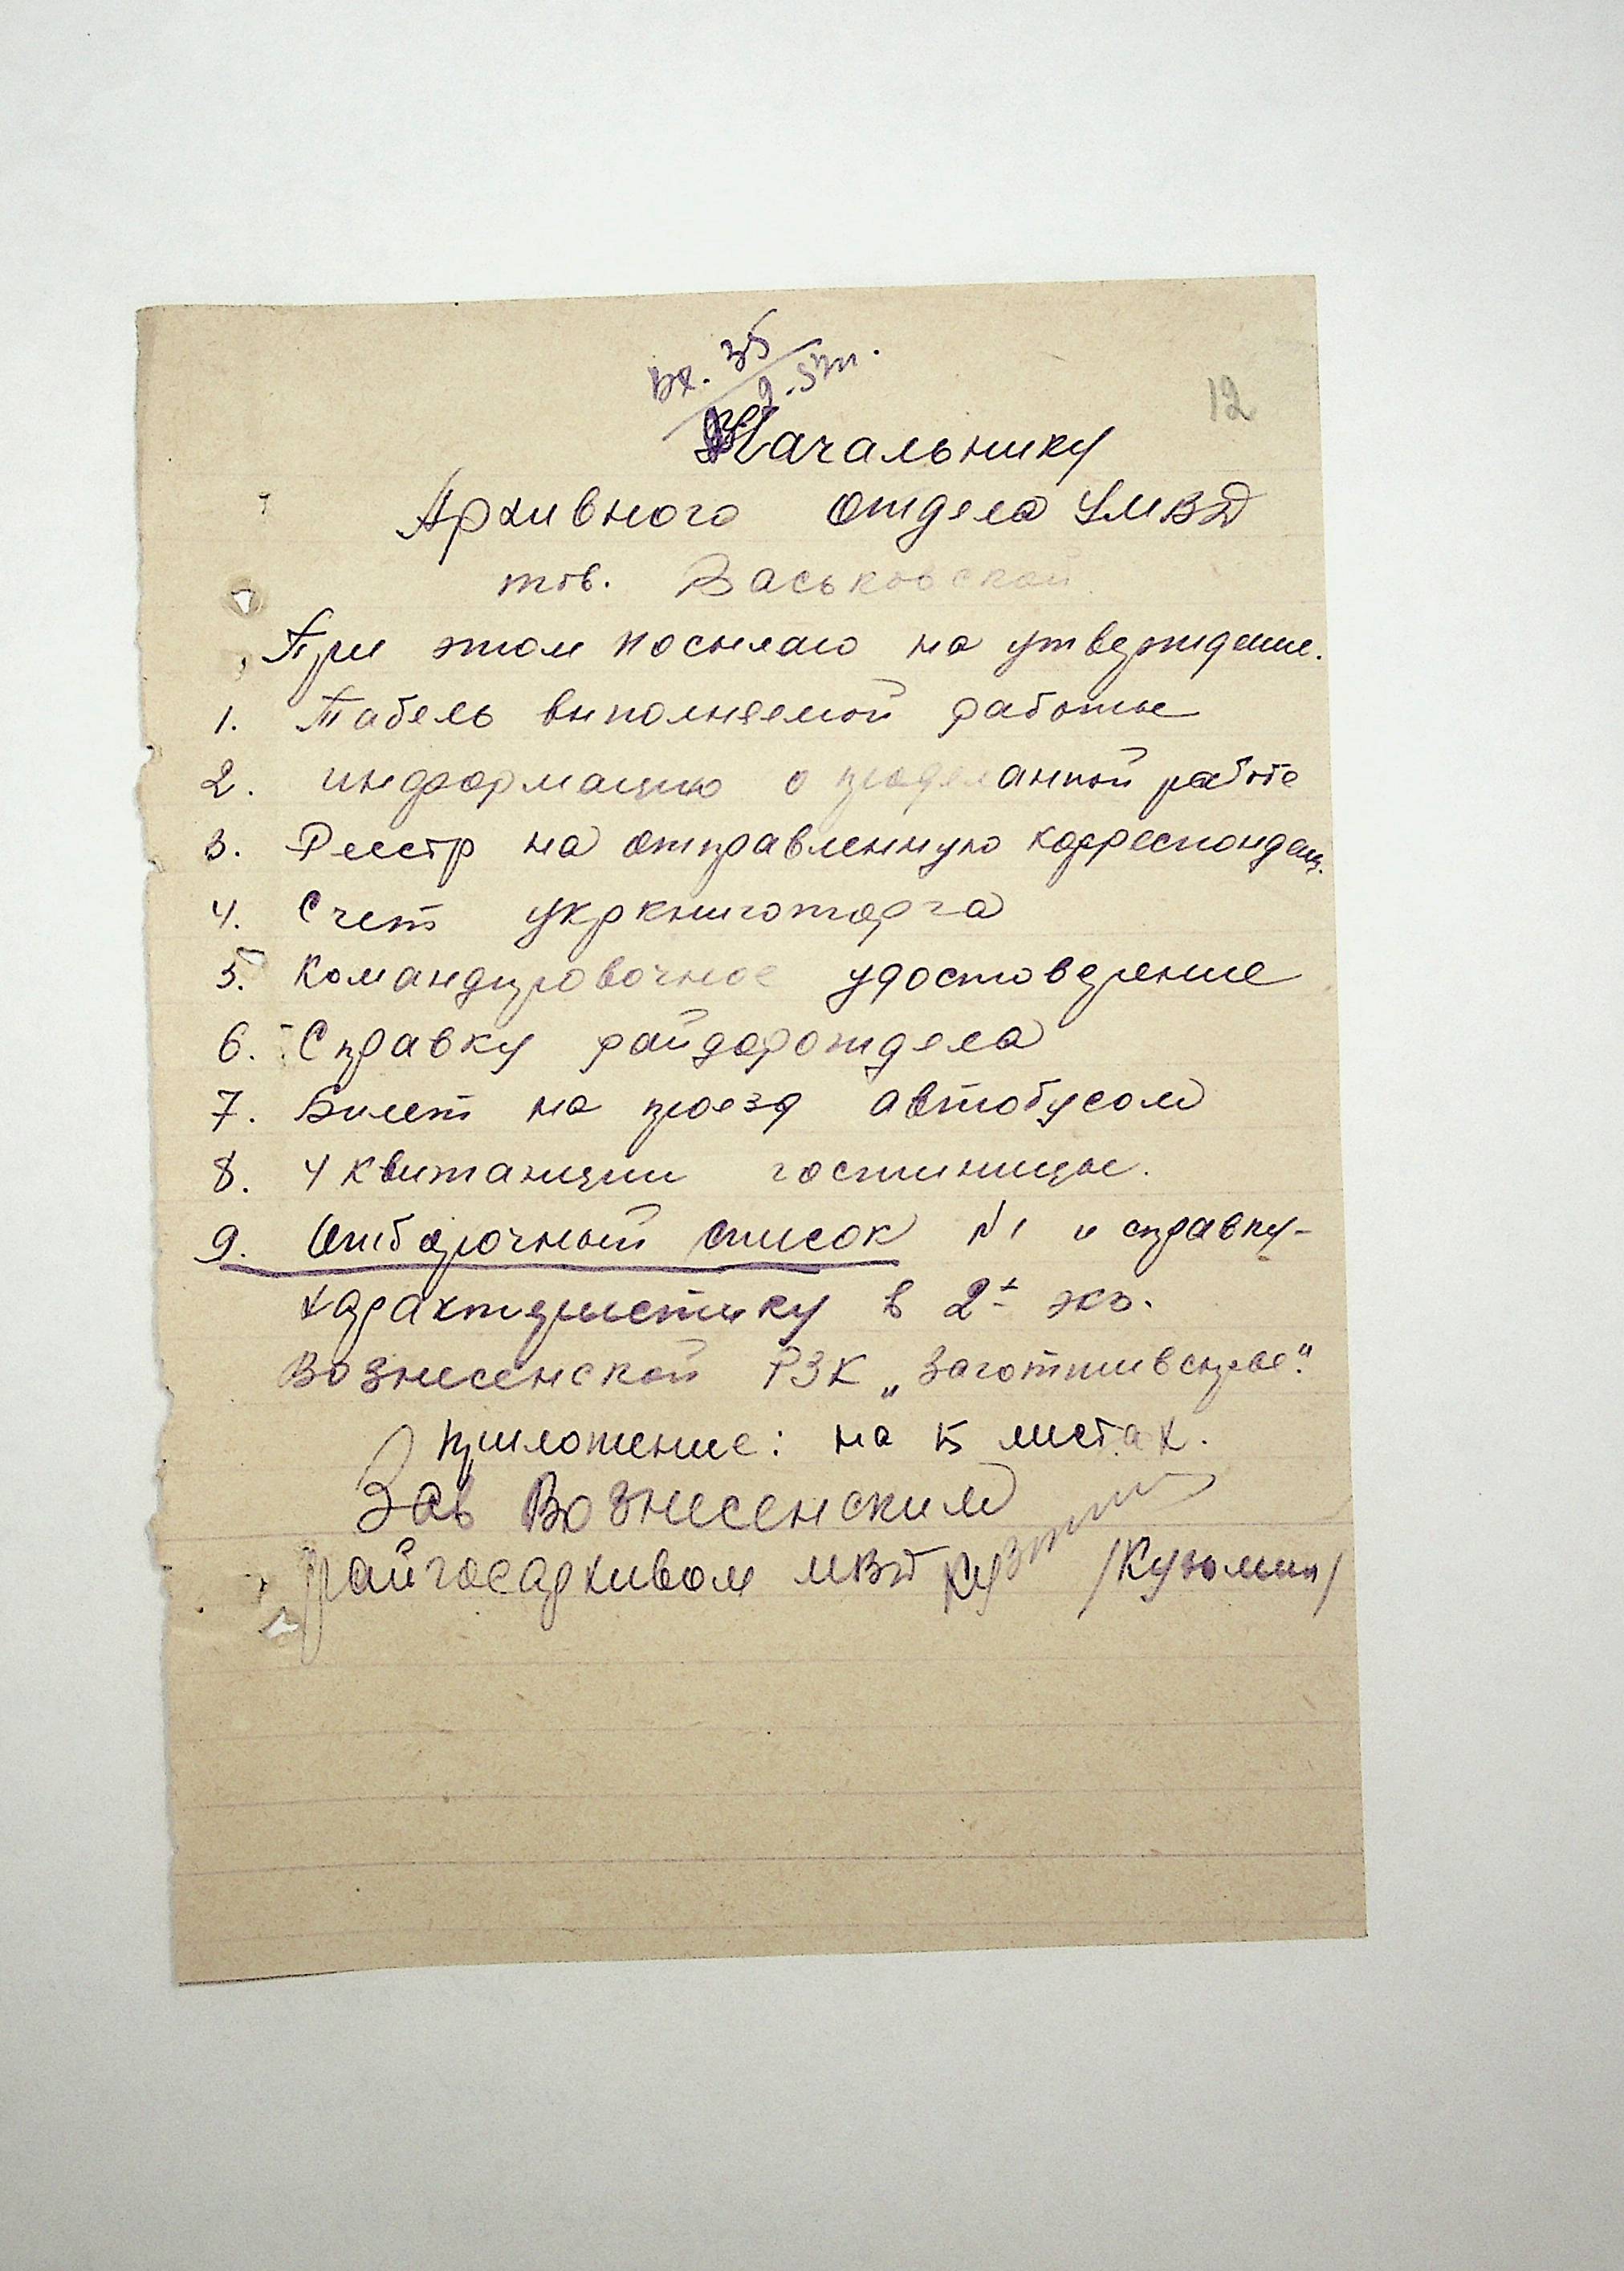 вх. 35
12
Начальнику
Архивного отдела УМВД
тов. Васьковской
При этом посылаю на утверждение.
1. Табель выполняемой работы
2. информацию о проделанной работе
3. Реестр на отправленную корреспонденц.
4. Счет укркниготорга
5. Командировочное удостоверение
6. Справку райдоротдела
7. Билет на проезд автобусом
8. 4 квитанции гостиницы.
9. Отборочный список №1 и справку-
характеристику в 2х экз.
Вознесенской РЗК „Заготживсырье".
приложение: на 15 листах.
Зав Вознесенским
райгосархивом МВД /Кузьмин/